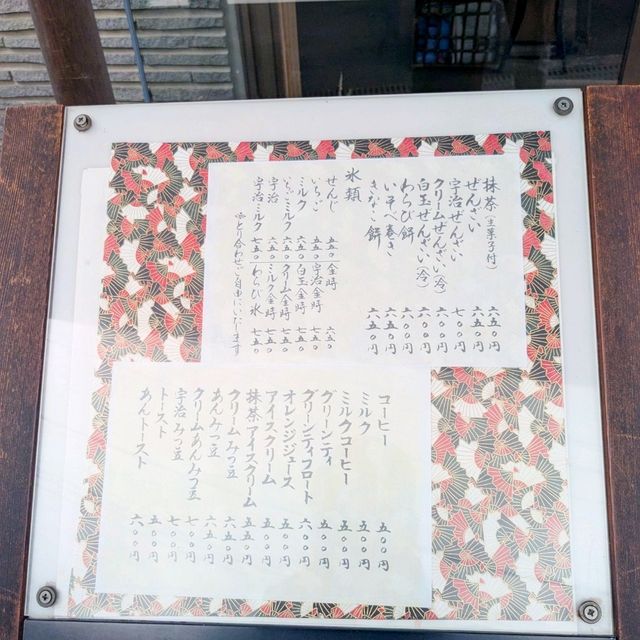 抹茶(生菓子付) 六五〇円
ぜんざい 六五〇円
宇治ぜんざい 七〇〇円
クリームぜんざい(冷) 六〇〇円
白玉ぜんざい(冷) 六〇〇円
わらび餅 六〇〇円
いそべ巻き 六五〇円
きなこ餅 六五〇円
氷類
せんじ 五五〇 金時 六五〇
いちご 五五〇 宇治金時 七五〇
ミルク 六五〇 白玉金時 七五〇
いちごミルク 六五〇 クリーム金時 七五〇
宇治 六五〇 ミルク金時 七五〇
宇治ミルク 七五〇 わらび氷 七五〇
とり合わせご自由にいたします
コーヒー 五〇〇円
ミルク 五〇〇円
ミルクコーヒー 五〇〇円
グリーンティ 五〇〇円
グリーンティフロート 六〇〇円
オレンジジュース 五〇〇円
アイスクリーム 五〇〇円
抹茶アイスクリーム 五五〇円
クリームみつ豆 六五〇円
あんみつ豆 六五〇円
クリームあんみつ豆 七〇〇円
宇治みつ豆 七〇〇円
トースト 五〇〇円
あんトースト 六〇〇円